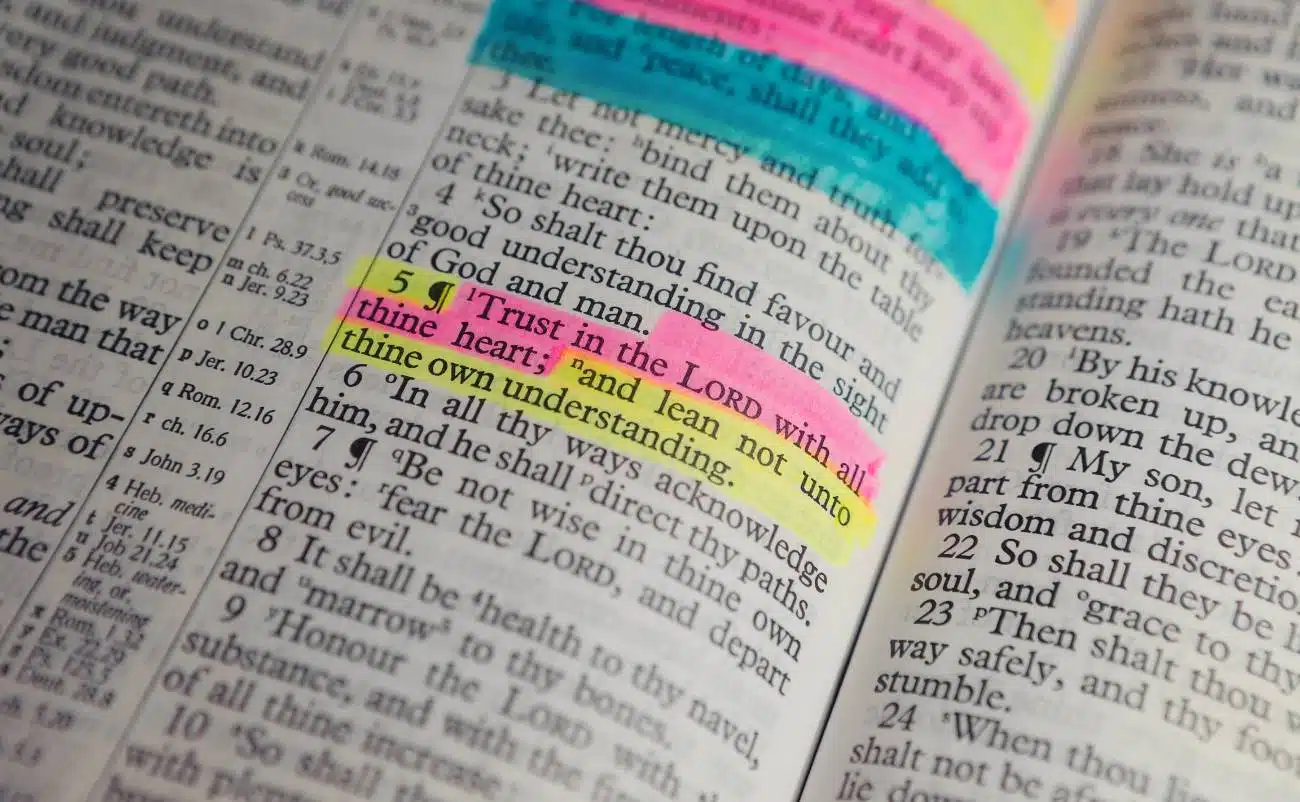 understand
and judgment, and
ery good path.
sdom entereth into
d knowledge is
soul;
hall preserve
ng shall keep
om the way
e man that
s of up-
ways of
and
the
k Rom. 14.18
3 Or, good suc-
cess
l Ps. 37.3,5
m ch. 6.22
n Jer. 9.23
o 1 Chr. 28.9
p Jer. 10.23
q Rom. 12.16
r ch. 16.6
s John 3.19
4 Heb. medi-
cine
t Jer. 11.15
u Job 21.24
5 Heb. water-
ing, or,
moistening
thine heart keep my
2 For length of days, and
and peace, shall they add
thee.
3 Let not mercy and truth for-
sake thee: h bind them about thy
neck; i write them upon the table
of thine heart:
4 k So shalt thou find favour and
3 good understanding in the sight
of God and man.
5 ¶ l Trust in the LORD with all
thine heart; n and lean not unto
thine own understanding.
6 o In all thy ways acknowledge
him, and he shall p direct thy paths.
7 ¶ q Be not wise in thine own
eyes: r fear the LORD, and depart
from evil.
8 It shall be 4 health to thy navel,
and u marrow 5 to thy bones.
9 y Honour the LORD with thy
substance, and with the firs
of all thine increase:
10 So shall th
with plen
18 She is a
that lay hold up
is every one that
19 The LORD
founded the ea
standing hath he
heavens.
20 By his knowle
are broken up, an
drop down the dew.
21 ¶ My son, let
part from thine eyes:
wisdom and discretio
22 So shall they be
soul, and o grace to thy
23 p Then shalt thou
way safely, and thy foo
stumble.
24 s When thou lie
shalt not be af
lie dow